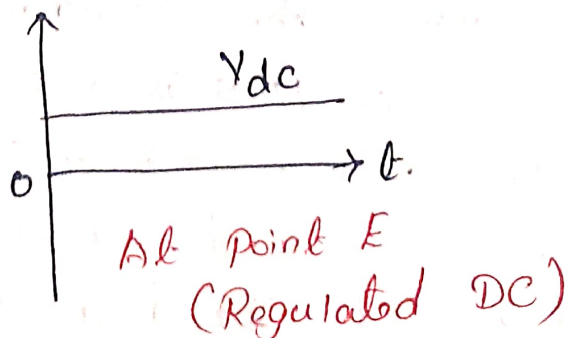 Vdc
0
t.
At Point E
(Regulated DC)